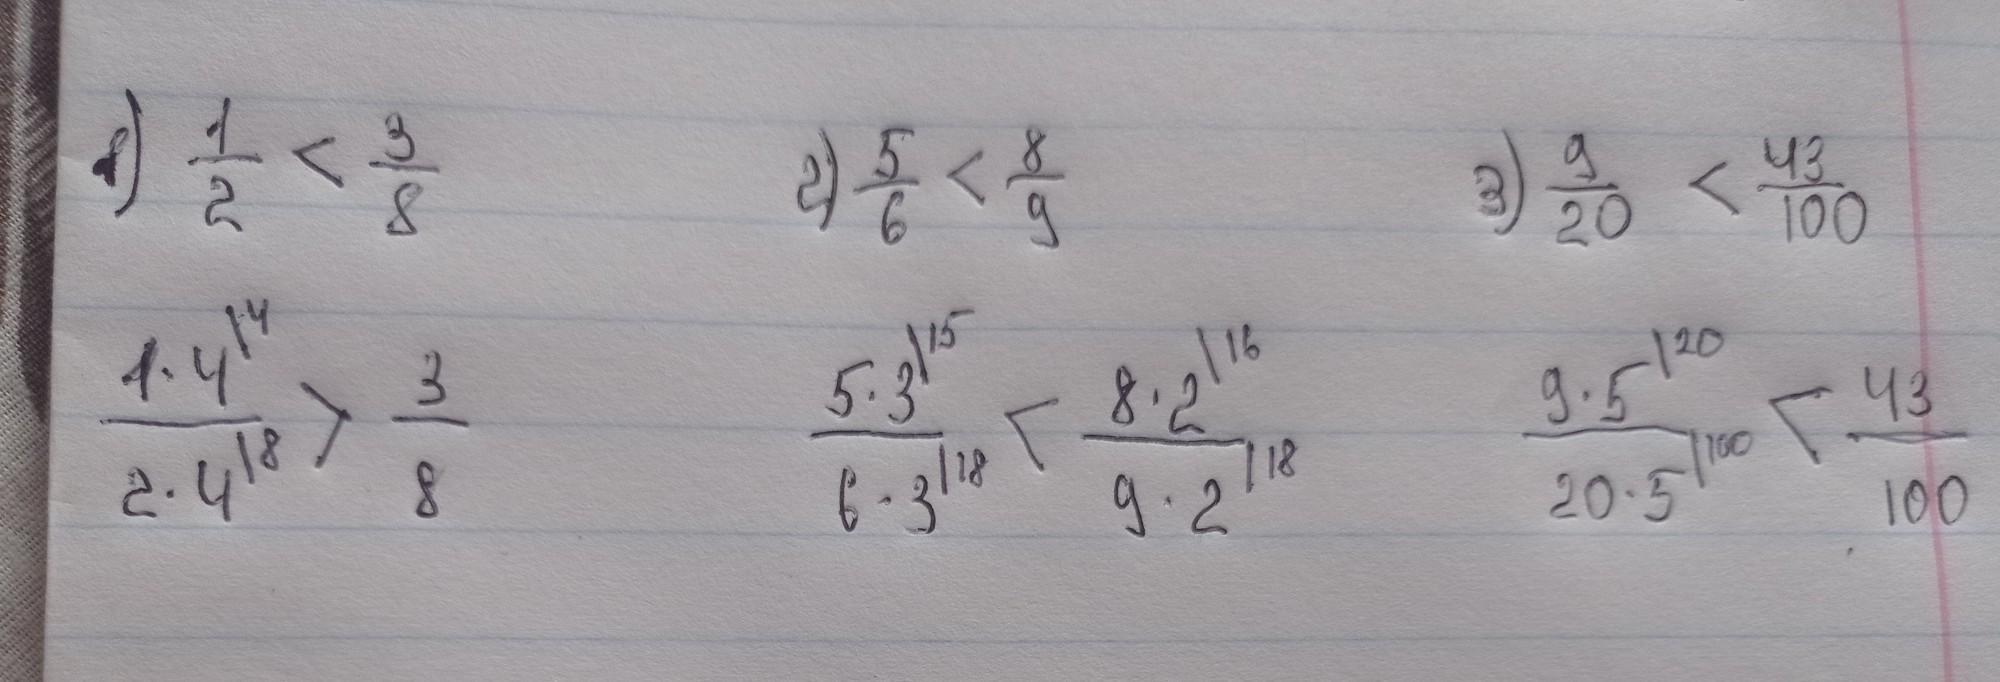 1) 1/2 < 3/8 2) 5/6 < 8/9 3) 9/20 < 43/100
1·4|4 / 2·4|8 > 3/8 5·3|15 / 6·3|18 < 8·2|16 / 9·2|18 9·5|20 / 20·5|100 < 43/100